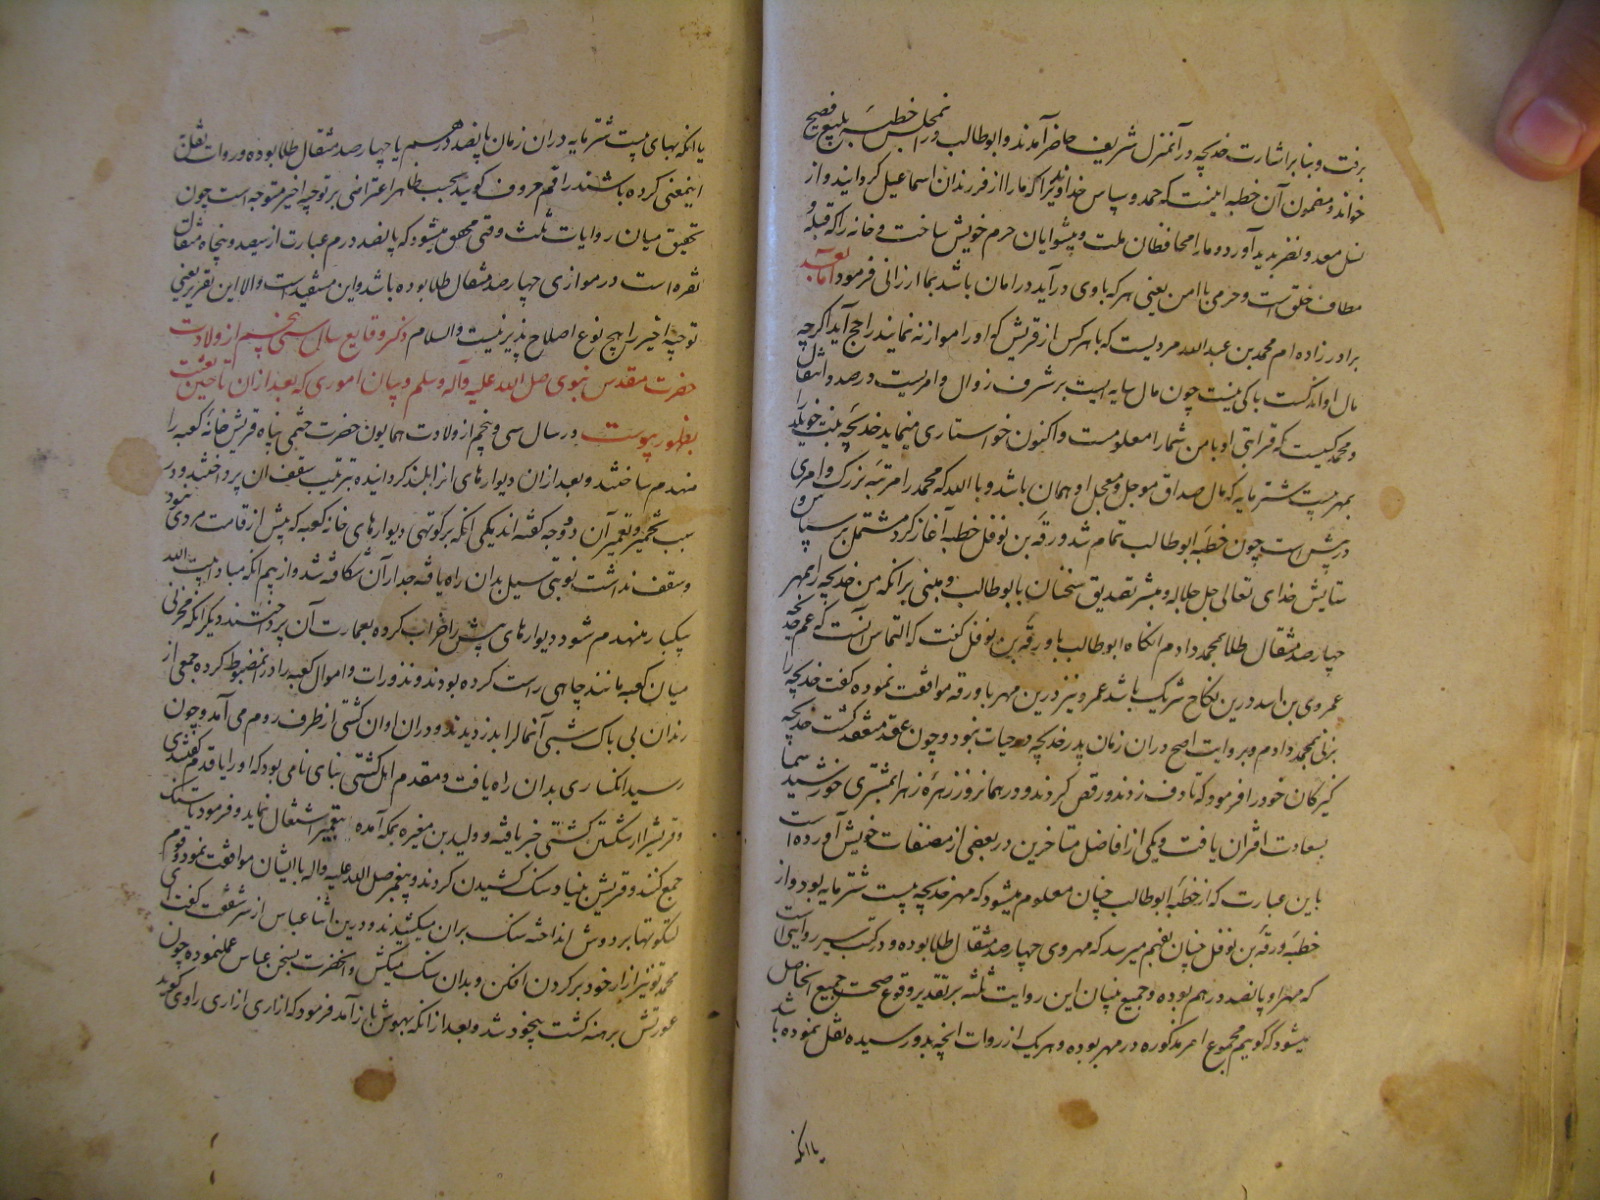 برفت و بنابر اشارت خدیجه در آنمنزل شریف حاضر آمدند و ابوطالب در انمجلس خطبه بلیغ فصیح
خواند و مضمون آن خطبه اینست که حمد و سپاس خداوندیرا که ما را از فرزندان اسماعیل کردانید و از
نسل معد و نضر بدید آورد و ما را محافظان ملت و پیشوایان حرم خویش ساخت و خانه را که قبله و
مطاف خلق است و حرمی با امن یعنی هر که باوی درآید در امان باشد بما ارزانی فرمود اما بعد
برادر زاده ام محمد بن عبدالله مردیست که با هر کس از قریش که او را موازنه نمایند راجح آید اکرچه
مال او اندکست باکی نیست چون مال سایه ایست بر شرف زوال و امریست در صدد انتقال
و محمد کیست که قرابتی او با من شما را معلومست و اکنون خواستاری مینماید خدیجه بنت خویلد را
بمهر بیست شتر مایه که مال صداق موجل و معجل او همان باشد و بالله که محمد را مرتبه بزرک و امری
در پیش است چون خطبه ابوطالب تمام شد ورقه بن نوفل خطبه آغاز کرد مشتمل بر سپاس و
ستایش خدای تعالی جل جلاله و مبشر تصدیق سخنان با بوطالب و مبنی بر انکه من خدیجه را بمهر
چهار صد مثقال طلا بمحمد دادم انکاه ابوطالب با ورقه بن نوفل کفت که التماس آنست که عم خدیجه
عمروی بن اسد درین نکاح شریک باشد عمرو نیز درین مهر با ورقه موافقت نموده کفت خدیجه را
بزنی بمحمد دادم و بروایت اصح دران زمان پدر خدیجه در حیات نبود و چون عقد منعقد کشت خدیجه
کنیزکان خود را فرمود که تا دف زدند و رقص کردند و در همانروز زهره زهرا بمشتری خورشید سیما
بسعادت اقتران یافت و یکی از افاضل متاخرین در بعضی از مصنفات خویش آورده است
باین عبارت که از خطبه ابوطالب چنان معلوم میشود که مهر خدیجه بیست شتر مایه بود و از
خطبه ورقه بن نوفل چنان بفهم میرسد که مهر وی چهار صد مثقال طلا بوده و در کتب سیر روایتی است
که مهر او پانصد درهم بوده و جمیع میان این روایت ثلثه بر تقدیر وقوع صحت جمیع انحاصل
میشود که کوییم مجموع امر مذکوره در مهر بوده و هر یک از روات انچه بدو رسیده نقل نموده باشد
یا انکه
یا انکه بهای بیست شتر مایه دران زمان پانصد درهم یا چهار صد مثقال طلا بوده و روات نقل
اینمعنی کرده باشند راقم حروف کوید بحسب ظاهر اعتراضی بر توجه اخیر متوجه است چون
تحقیق میان روایات ثلث وقتی محقق میشود که پانصد درم عبارت از سیصد و پنجاه مثقال
نقره است در موازی چهار صد مثقال طلا بوده باشد و این مستفید است والا این تقریر یعنی
توجیه اخیر را هیچ نوع اصلاح پذیر نیست والسلام ذکر وقایع سال سی پنجم از ولادت
حضرت مقدس نبوی صل الله علیه وآله وسلم و بیان اموری که بعد از ان تا حین بعثت
بظهور پیوست در سال سی و پنجم از ولادت همایون حضرت ختمی پناه قریش خانه کعبه را
منهدم ساختند و بعد از ان دیوارهای انرا بلند کردانیده بترتیب سقف ان پرداختند و در
سبب تخمیر و تعمیر آن دو وجه کفته اند یکی انکه بر کوتهی دیوارهای خانه کعبه که بیش از قامت مردی نبود
و سقف نداشت نوبتی سیل بدان راه یافته جدار آن شکافته شد و از بیم انکه مبادا بیت الله
بیکبار منهدم شود دیوارهای پیش را خراب کرده بعمارت آن پرداختند دیکر انکه مخزنی
میان کعبه مانند چاهی راست کرده بودند و نذورات و اموال کعبه را در انمضبوط کرده جمعی از
رندان بی باک شبی آنمالرا بدزدیدند و دران اوان کشتی از طرف روم می آمد و چون
رسید انکساری بدان راه یافت و مقدم اهل کشتی بنای نامی بود که او را یاقوم کفتندی
و قریش از شکستن کشتی خبر یافته و ولید بن مغیره بمکه آمده بتعمیر اشتغال نماید و فرمود تا سنک
جمع کنند و قریش بنیاد سنک کشیدن کردند و پیغمبر صل الله علیه واله با ایشان موافقت نمود و قوم
لنکوتها بر دوش انداخته سنک بران میکشیدند و درین اثنا عباس از سر شفقت کفت ای
محمد تو نیز ازار خود بر کردن افکن و بدان سنک میکش وانحضرت بسخن عباس عملنموده چون
عورتش برهنه کشت بیخود شد و بعد از انکه بهوش باز آمد فرمود که ازاری ازاری راوی کوید